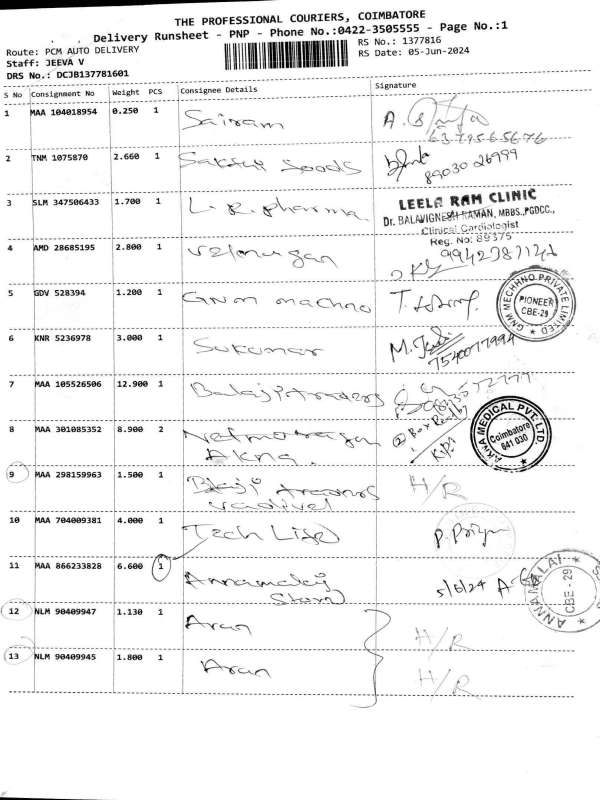 THE PROFESSIONAL COURIERS, COIMBATORE
Delivery Runsheet - PNP - Phone No.:0422-3505555 - Page No.:1
Route: PCM AUTO DELIVERY
RS No.: 1377816
Staff: JEEVA V
RS Date: 05-Jun-2024
DRS No.: DCJB137781601
S No Consignment No Weight PCS Consignee Details Signature
1 MAA 104018954 0.250 1 Sairam
2 TNM 1075870 2.660 1 Sakthi Goods 89030 26999
3 SLM 347506433 1.700 1 L. R. Pharma
LEELA RAM CLINIC
Dr. BALAVIGNESH RAMAN, MBBS.,PGDCC.,
Clinical Cardiologist
Reg. No: 89375
4 AMD 28685195 2.800 1 Velmurugan
5 GDV 528394 1.200 1 GNM machno
GNM MECHHNO PRIVATE LIMITED
PIONEER
CBE-29
6 KNR 5236978 3.000 1 Sukumar
7540077994
7 MAA 105526506 12.900 1 Balaji traders
8 MAA 301085352 8.900 2
Akna.
2 Box
AKNA MEDICAL PVT. LTD.
Coimbatore
641 030
9 MAA 298159963 1.500 1 H/R
Vadivel
10 MAA 704009381 4.000 1 Tech Life P. Priya
11 MAA 866233828 6.600 1 Annamalai
5/6/24
ANNAMALAI
CBE - 29
12 NLM 90409947 1.130 1 Aran H/R
13 NLM 90409945 1.800 1 Aran H/R